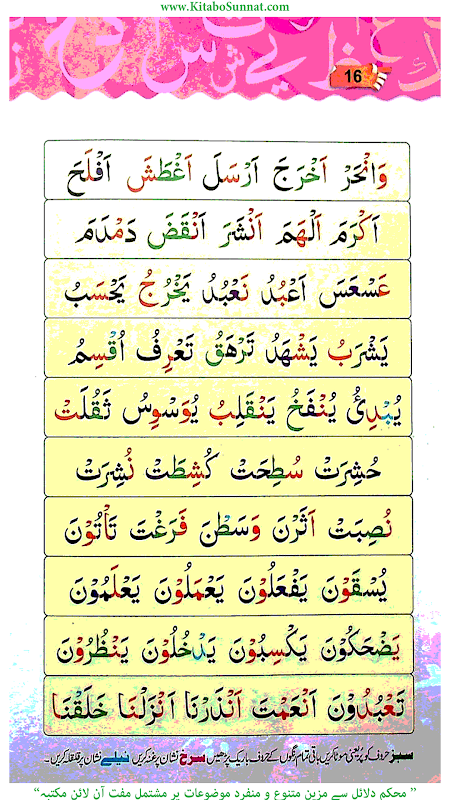 www.KitaboSunnat.com
16
وَانْحَرْ اَخْرَجَ اَرْسَلَ اَغْطَشَ اَفْلَحَ
اَكْرَمَ اَلْهَمَ اَنْشَرَ اَنْقَضَ دَمْدَمَ
عَسْعَسَ اَعْبُدُ نَعْبُدُ يَخْرُجُ يَحْسَبُ
يَشْرَبُ يَشْهَدُ تَرْهَقُ تَعْرِفُ اُقْسِمُ
يُبْدِئُ يُنْفَخُ يَنْقَلِبُ يُوَسْوِسُ ثَقُلَتْ
حُشِرَتْ سُطِحَتْ كُشِطَتْ نُشِرَتْ
نُصِبَتْ اَثَرْنَ وَسَطْنَ فَرَغْتَ تَأْتُوْنَ
يُسْقَوْنَ يَفْعَلُوْنَ يَعْمَلُوْنَ يَعْلَمُوْنَ
يَضْحَكُوْنَ يَكْسِبُوْنَ يَدْخُلُوْنَ يَنْظُرُوْنَ
تَعْبُدُوْنَ اَنْعَمْتَ اَنْذَرْنَا اَنْزَلْنَا خَلَقْنَا
سبز حروف کو پُر یعنی موٹا کریں باقی تمام رنگوں کے حروف باریک پڑھیں سرخ نشان پر غنہ کریں نیلے نشان پر قلقلہ کریں۔
” محکم دلائل سے مزین متنوع و منفرد موضوعات پر مشتمل مفت آن لائن مکتبہ“